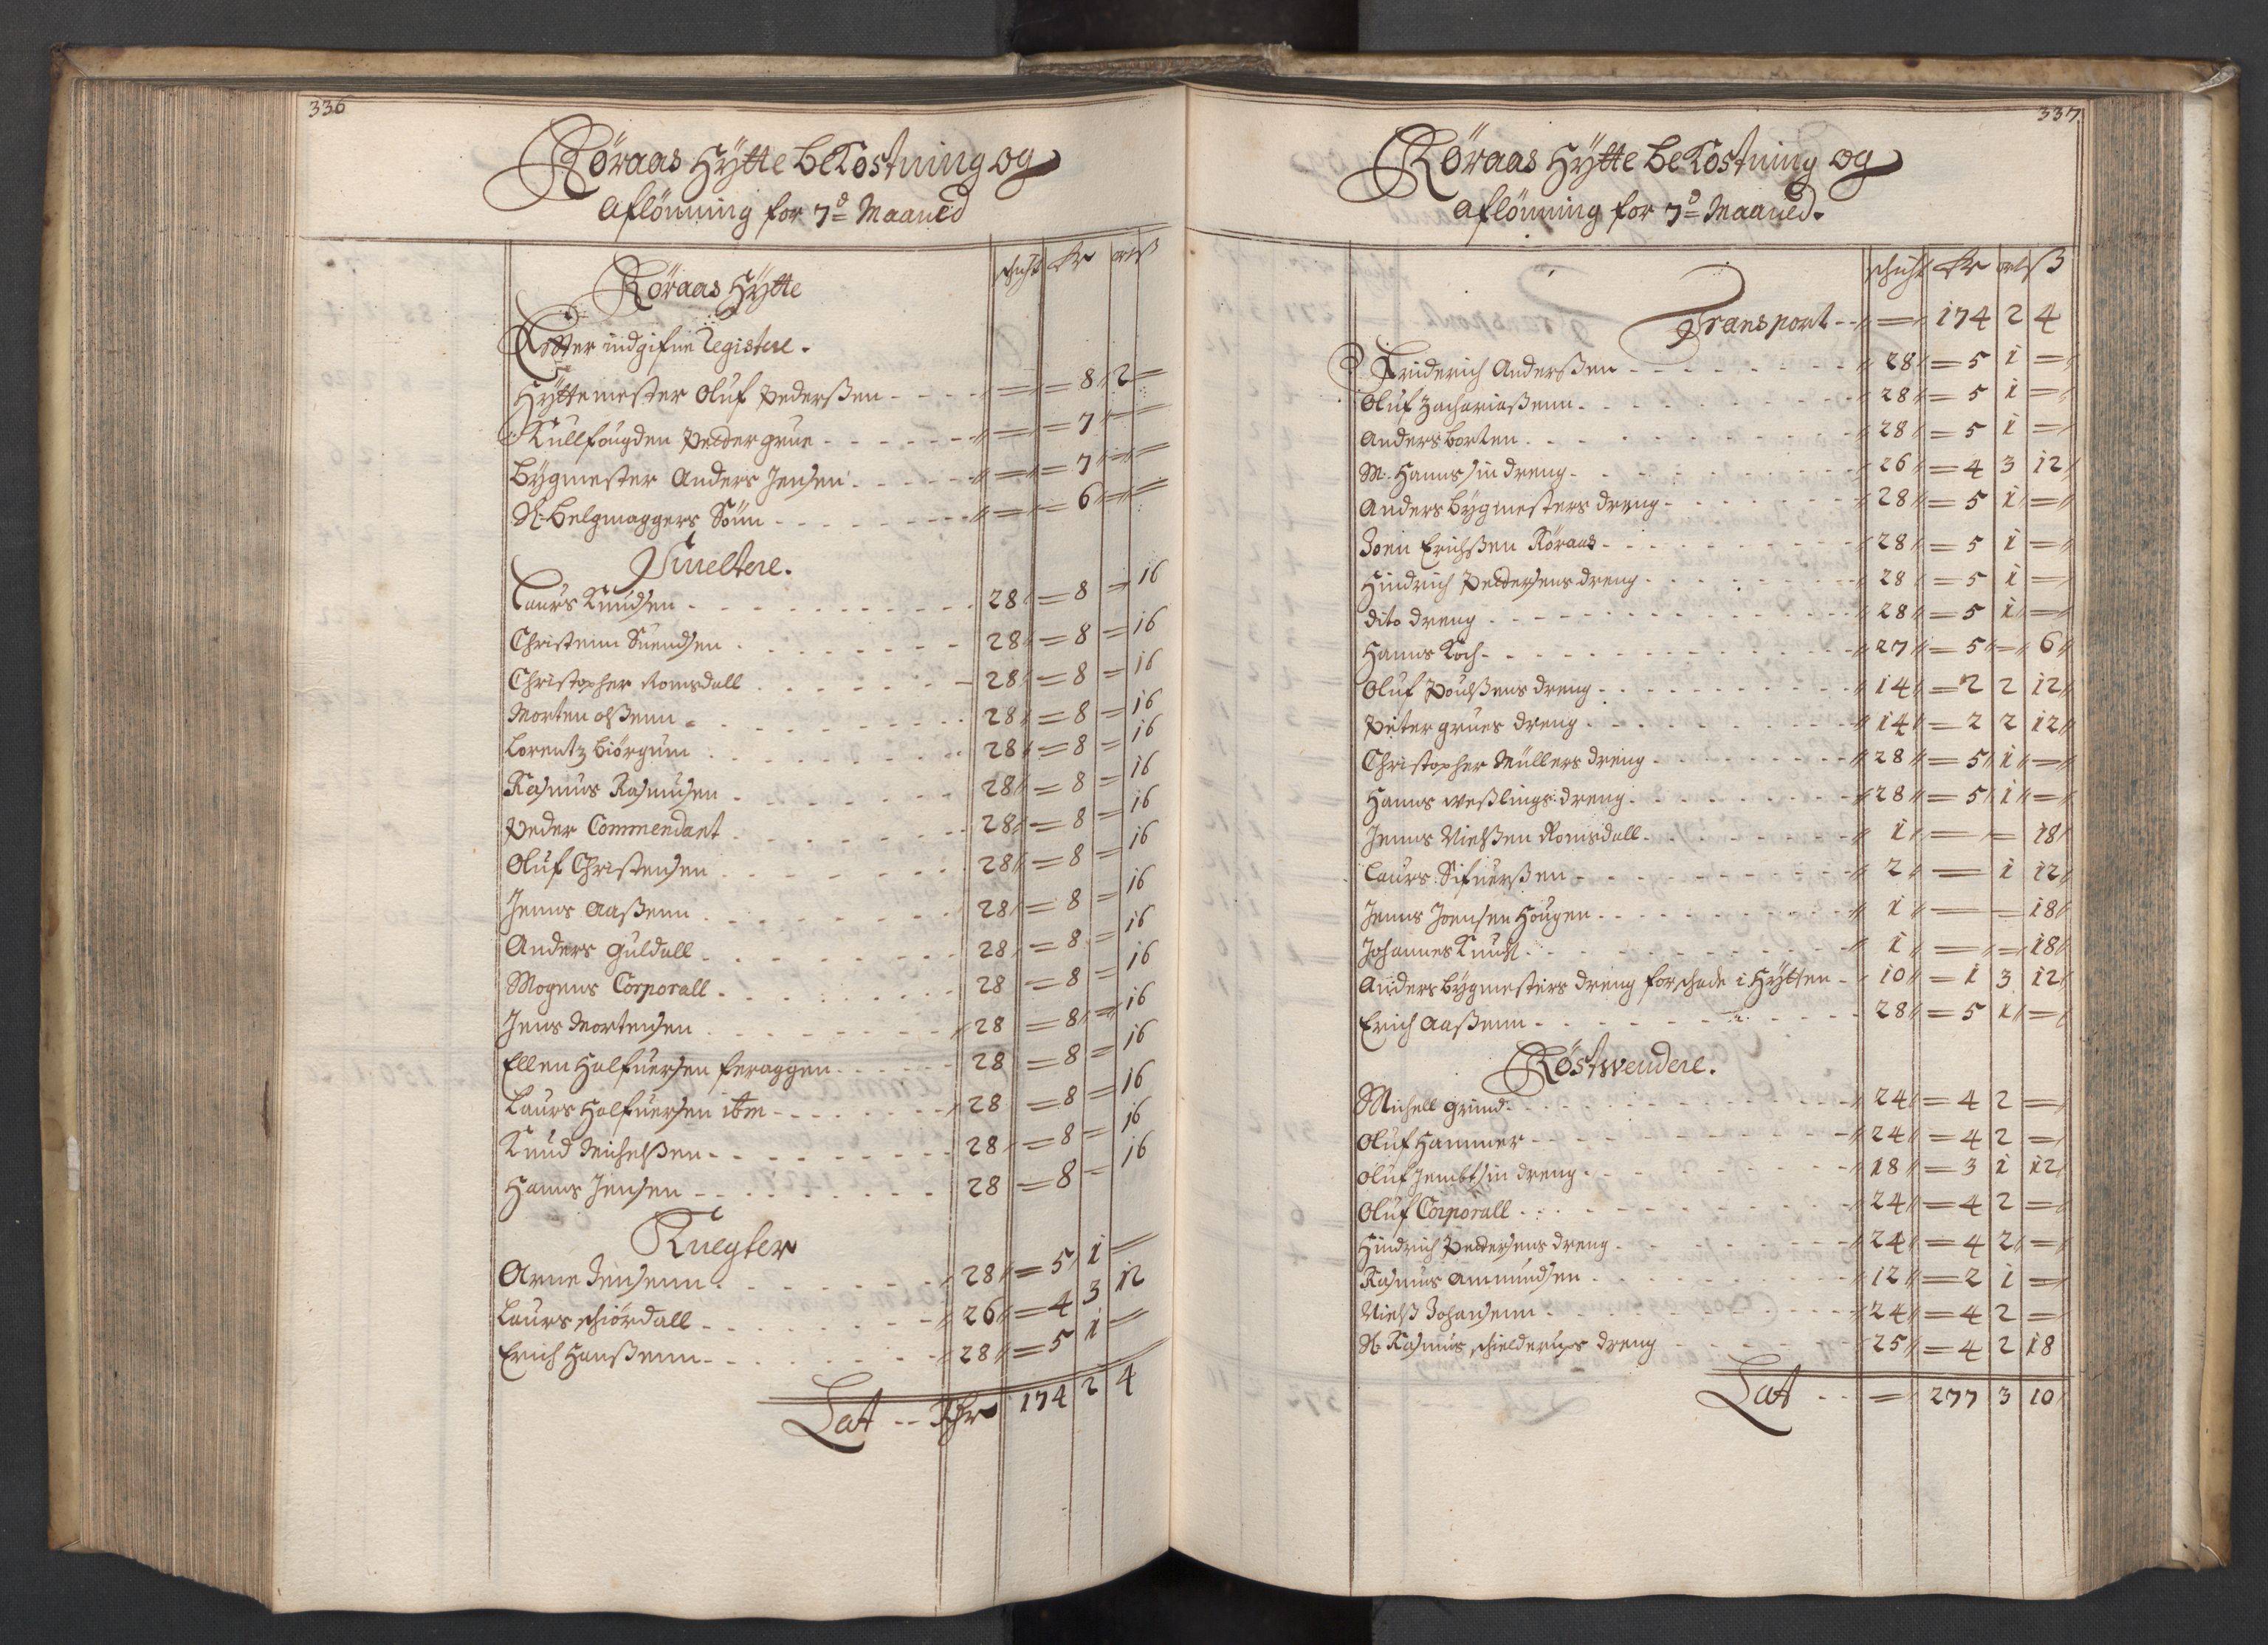 336
Röraas Hytte bekostning og
aflönning for 7de Maaned
schicht Rdr ort ß
Röraas Hytte
Effter indgifne Registere.
Hyttemester Oluf Pederßen - - - = = 8 2 =
Kullfougden Pedder grue - - - = = 7 = =
Bygmester Anders Jensen - - - = = 7 = =
N. belgmaggers Sönn - - - = = 6 = =
Smeltere.
Laurs Knudsen - - - 28 = 8 = 16
Christenn Suendsen - - - 28 = 8 = 16
Christopher Romsdall - - - 28 = 8 = 16
Morten olßenn - - - 28 = 8 = 16
Lorentz biörgum - - - 28 = 8 = 16
Rasmus Rasmusen - - - 28 = 8 = 16
Peder Commendant - - - 28 = 8 = 16
Oluf Christensen - - - 28 = 8 = 16
Jenns Aaßenn - - - 28 = 8 = 16
Anders guldall - - - 28 = 8 = 16
Mogens Corporall - - - 28 = 8 = 16
Jens Mortensen - - - 28 = 8 = 16
Ellen Halfuersen feraggen - - - 28 = 8 = 16
Laurs Halfuersen ibm - - - 28 = 8 = 16
Knud Michelßen - - - 28 = 8 = 16
Hanns Jensen - - - 28 = 8 = 16
Knegter
Arne Jensenn - - - 28 = 5 1 =
Laurs schiördall - - - 26 = 4 3 12
Erich Hanßenn - - - 28 = 5 1 =
Lat - - Rdr 174 2 4
337
Röraas Hytte bekostning og
aflönning for 7de Maaned.
schicht Rdr ort ß
Transport - - = 174 2 4
Friderich Anderßen - - - 28 = 5 1 =
Oluf Zachariaßenn - - - 28 = 5 1 =
Anders borten - - - 28 = 5 1 =
M. Hanns sin dreng - - - 26 = 4 3 12
Anders bygmesters dreng - - - 28 = 5 1 =
Joen Erichßen Röraas - - - 28 = 5 1 =
Hindrich Peddersens dreng - - - 28 = 5 1 =
dito dreng - - - 28 = 5 1 =
Hanns Koch - - - 27 = 5 = 6
Oluf Poulßens dreng - - - 14 = 2 2 12
Peter grues dreng - - - 14 = 2 2 12
Christopher Müllers dreng - - - 28 = 5 1 =
Hanns weßlings dreng - - - 28 = 5 1 =
Jenns Nielßen Romsdall - - - 1 = = 18
Laurs Sifuerßen - - - 2 = 1 12
Jenns Joensen Hougen - - - 1 = = 18
Johannes Knudt - - - 1 = = 18
Anders bygmesters dreng for schade i Hytten - 10 = 1 3 12
Erich Aaßenn - - - 28 = 5 1 =
Röstwendere.
Michell grind - - - 24 = 4 2 =
Oluf Hammer - - - 24 = 4 2 =
Oluf Jembt sin dreng - - - 18 = 3 1 12
Oluf Corporall - - - 24 = 4 2 =
Hindrich Peddersens dreng - - - 24 = 4 2 =
Rasmus Ammundsen - - - 12 = 2 1 =
Nielß Johansenn - - - 24 = 4 2 =
N. Rasmus schielderups dreng - - - 25 = 4 2 18
Lat - - = 277 3 10